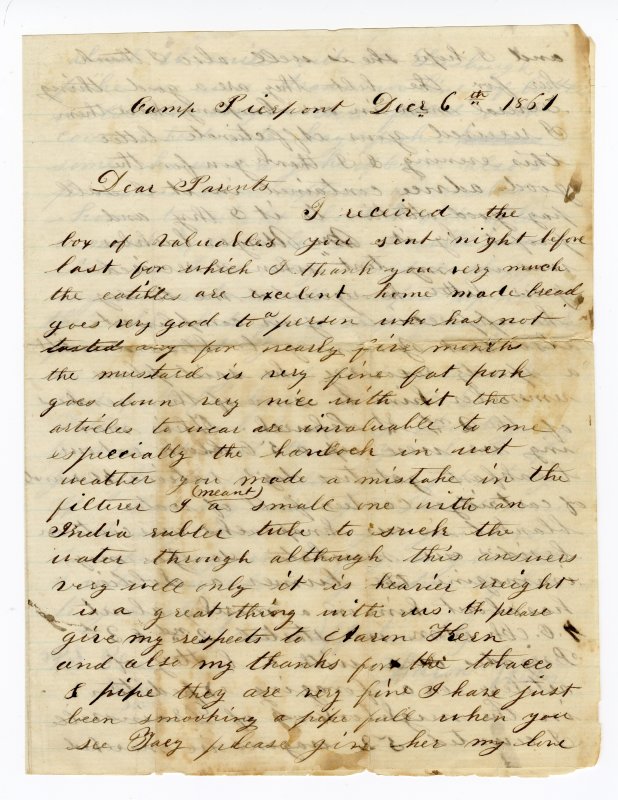 Camp Pierpont Decr 6th 1861
Dear Parents
I received the
box of valuables you sent night before
last for which I thank you very much
the eatibles are excelent home made bread
goes very good to a person who has not
tasted any for nearly five months
the mustard is very fine fat pork
goes down very nice with it the
articles to wear are invaluable to me
especially the havlock in wet
weather you made a mistake in the
filterer I (meant) a small one with an
India rubber tube to suck the
water through although this answers
very well only it is heavier weight
is a great thing with us. please
give my respects to Aaron Kern
and also my thanks for the tobacco
& pipe they are very fine I have just
been smooking a pipe full when you
see please give her my love